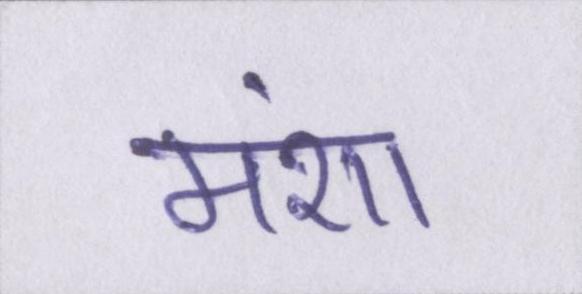 मंशा